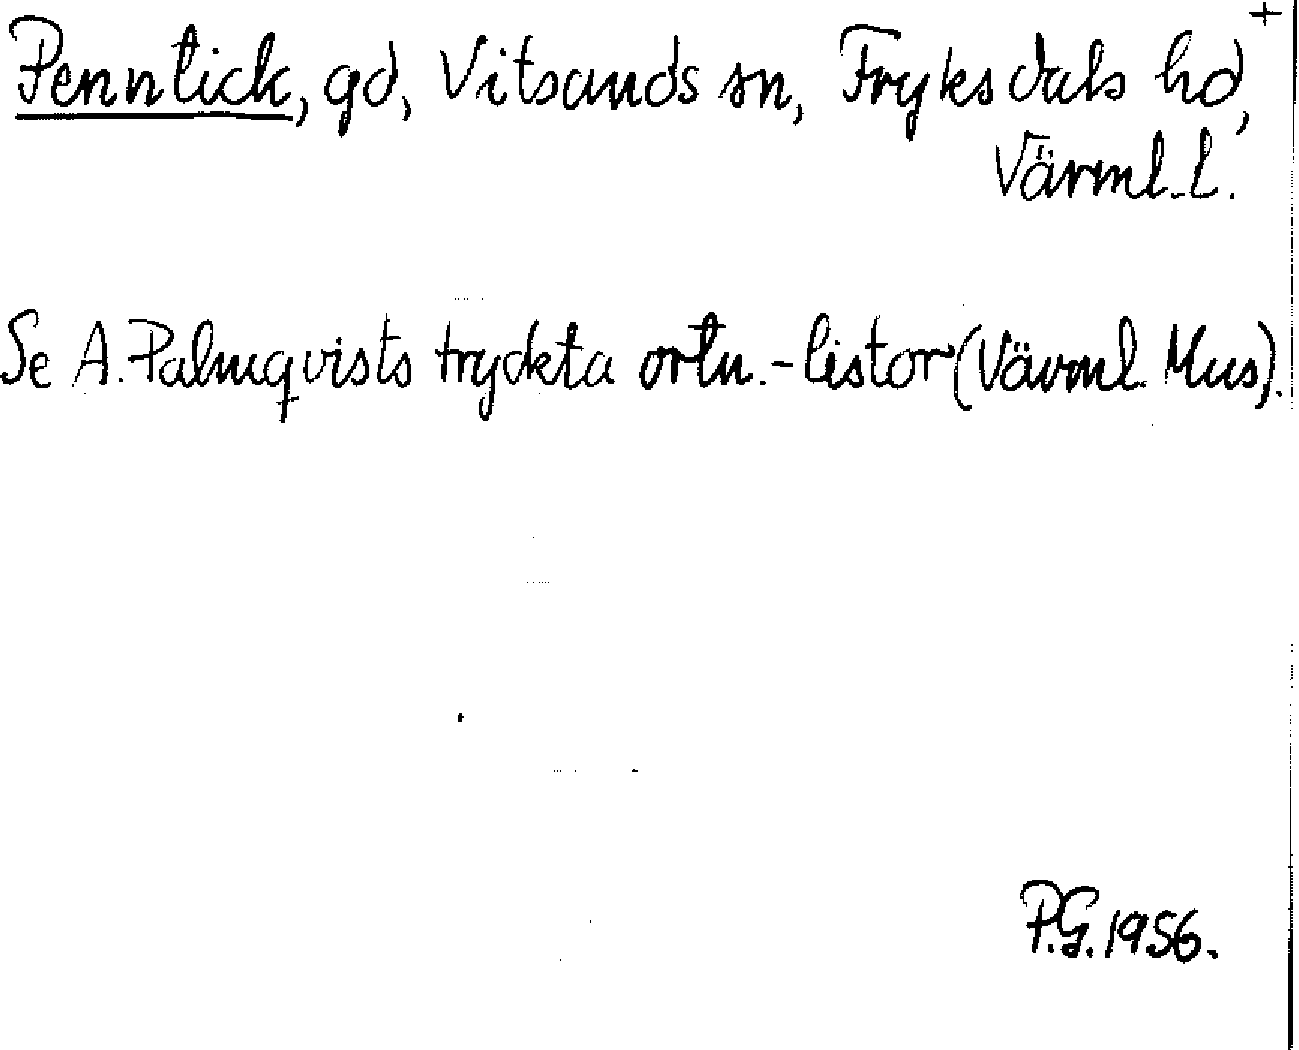 Penntick, gd, Vitsands sn, Fryksdals hd, +
Värml. l.
Se A. Palmqvists tryckta ortn.-listor (Värml. Mus).
P.G. 1956.